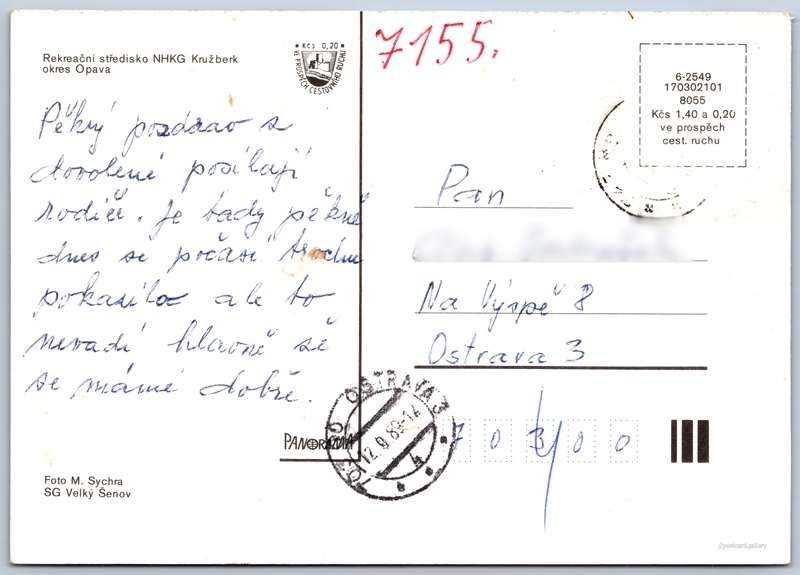 Rekreační středisko NHKG Kružberk
okres Opava
Kčs 0,20
VE PROSPĚCH CESTOVNÍHO RUCHU
7155.
6-2549
170302101
8055
Kčs 1,40 a 0,20
ve prospěch
cest. ruchu
Pěkný pozdrav z
dovolené posílají
rodiče. Je tady pěkně
dnes se počasí trochu
pokazilo ale to
nevadí hlavně že
se máme dobře.
Pan
Na Výspě 8
Ostrava 3
70300
OSTRAVA 3
PANORAMA
Foto M. Sychra
SG Velký Šenov